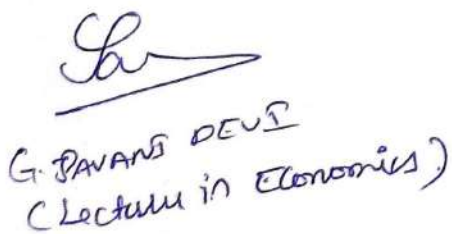 G. PAVANI DEVI
(Lecturer in Economics)